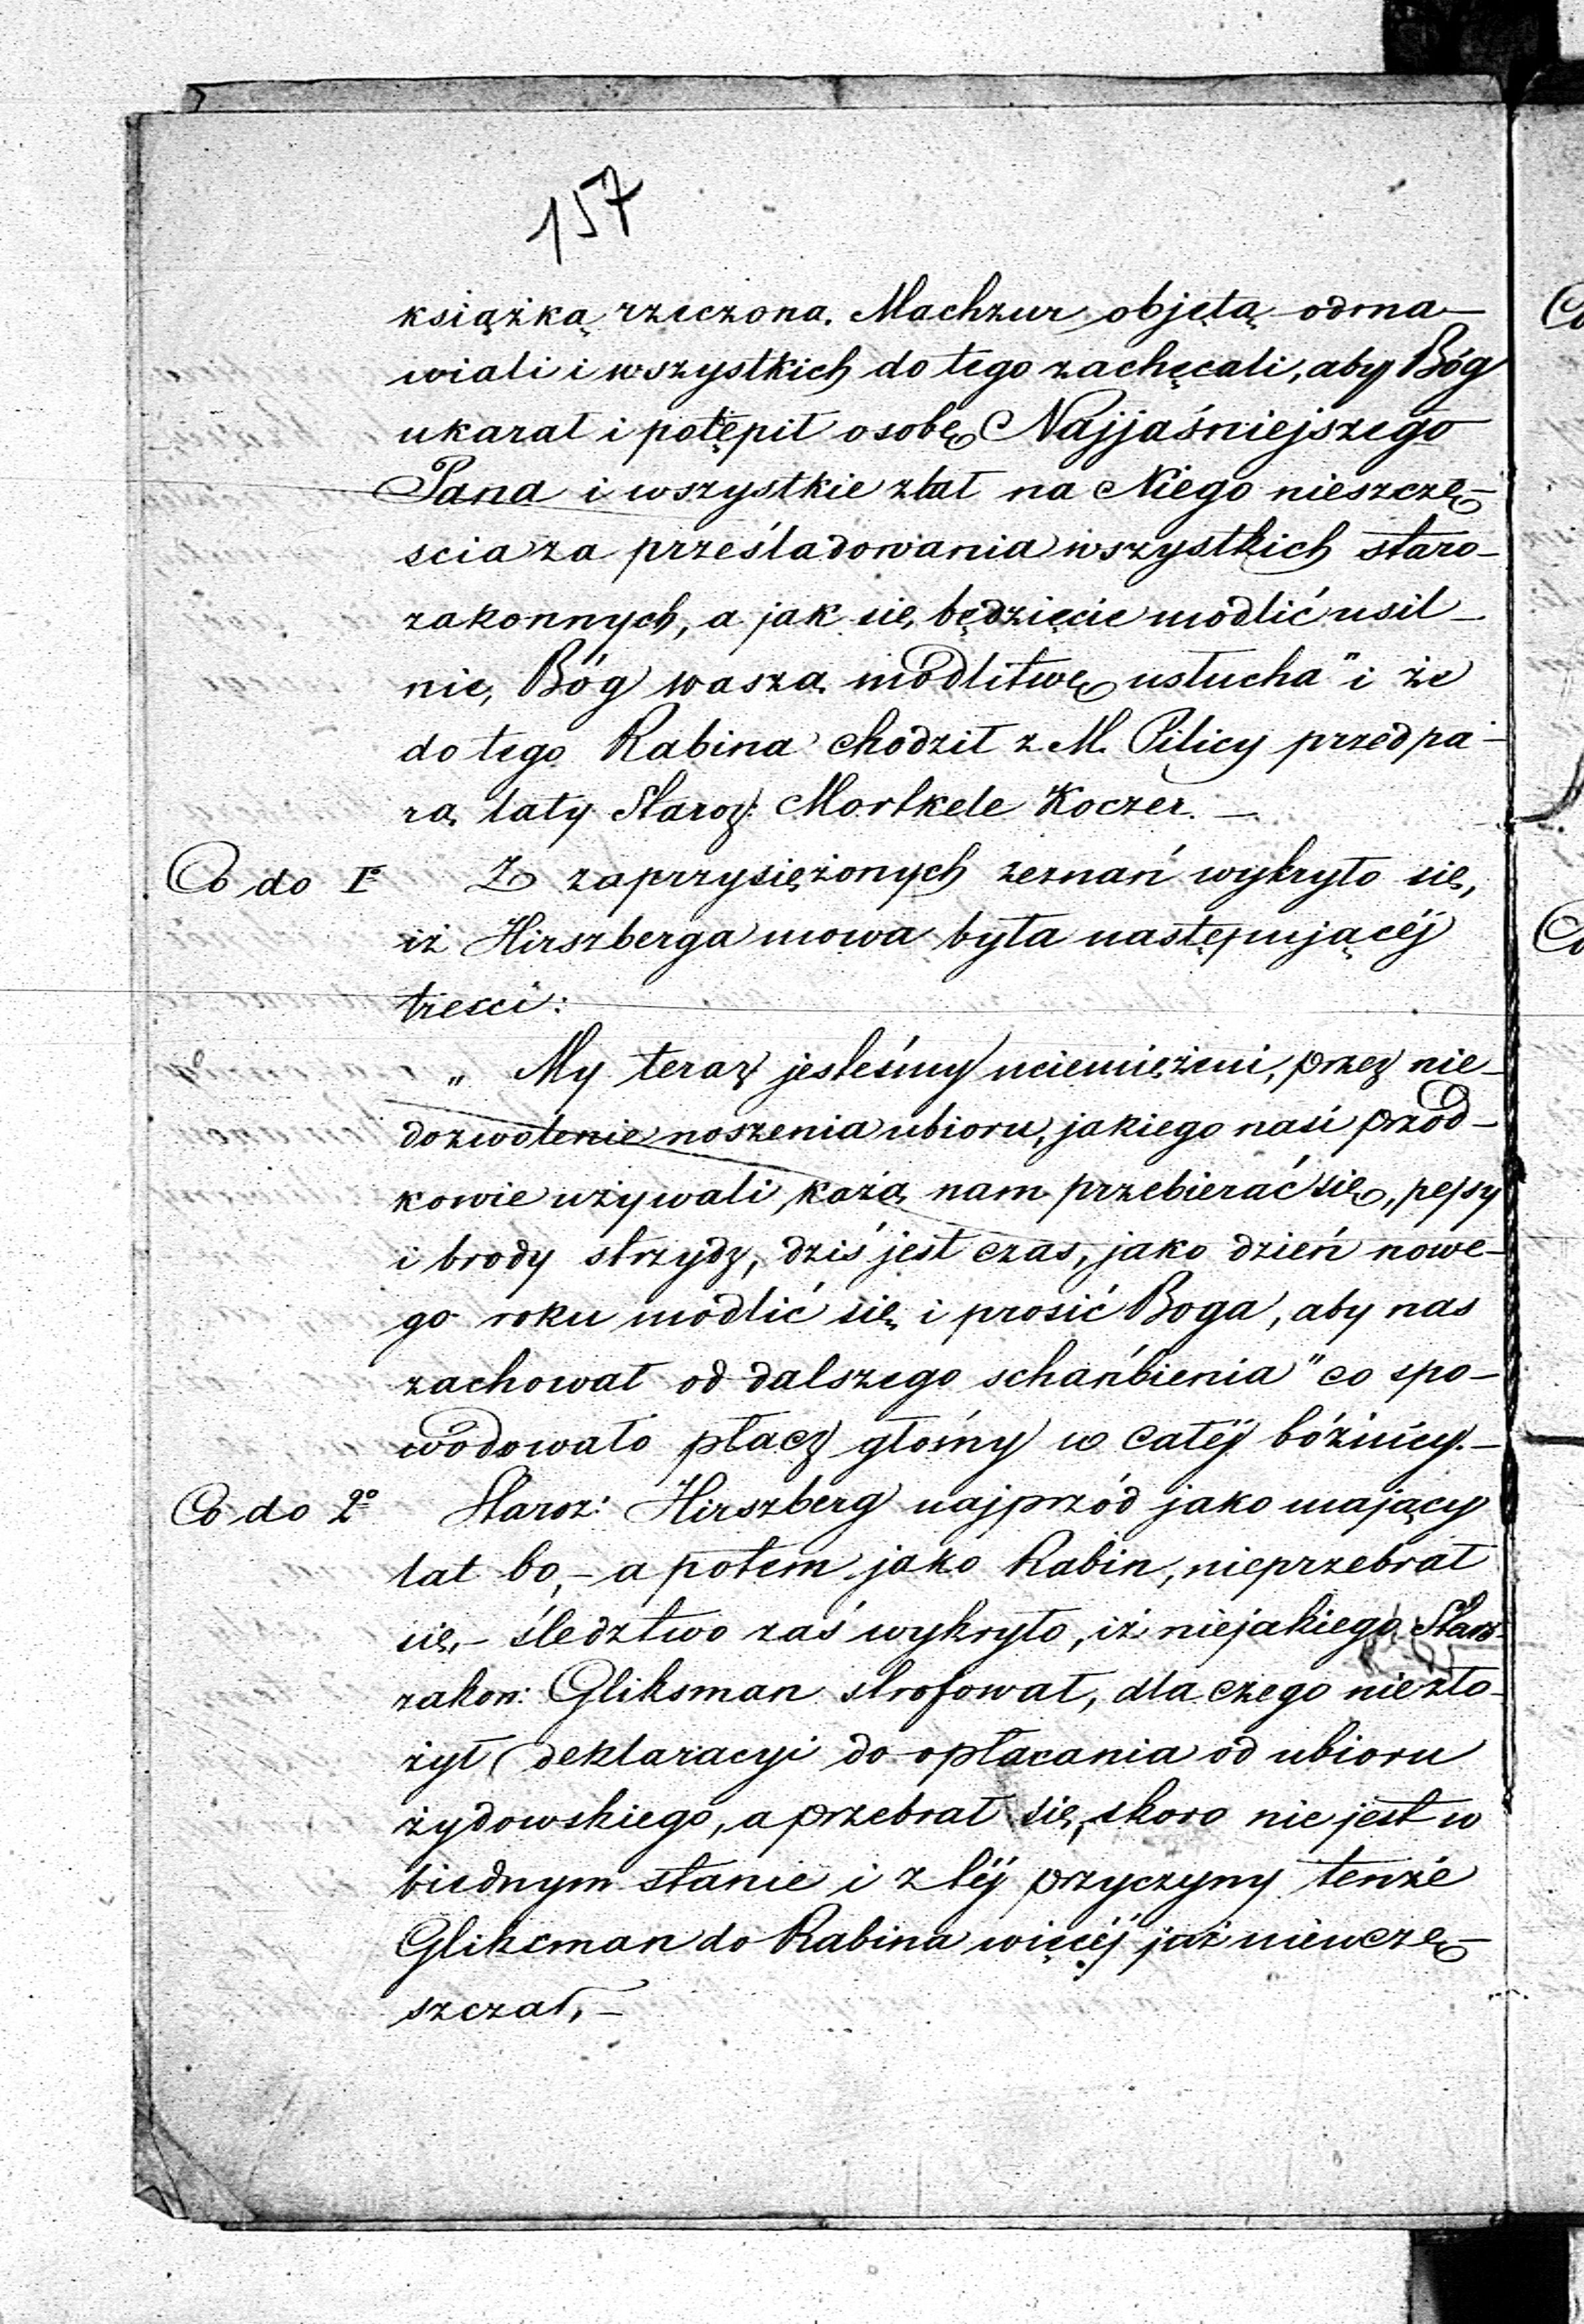 157
książką rzeczoną Machzur objętą odma-
wiali i wszystkich do tego zachęcali, aby Bóg
ukarał i potępił osobę Najjaśniejszego
Pana i wszystkie zlał na Niego nieszczę-
scia za prześladowania wszystkich staro-
zakonnych, a jak się będziecie modlić usil-
nie, Bóg waszą modlitwę usłucha" i że
do tego Rabina chodził z M. Pilicy przed pa-
rą laty Staroz: Mortkele Koczer. —
Co do 1º Z zaprzysiężonych zeznań wykryło się,
iż Hirszberga mowa była następującéj
tresci:
„ My teraz jesteśmy uciemiężeni, przez nie-
dozwolenie noszenia ubioru, jakiego nasi przod-
kowie używali, każą nam przebierać się, pejsy
i brody strzydz, dziś jest czas, jako dzień nowe-
go roku modlić się i prosić Boga, aby nas
zachował od dalszego schańbienia" co spo-
wodowało płacz głośny w całéj bóźnicy. —
Co do 2º Staroz: Hirszberg najprzód jako mający
lat 60, — a potem jako Rabin, nieprzebrał
się, — śledztwo zaś wykryło, iż niejakiego Staro-
zakon: Gliksman strofował, dla czego niezło-
żył deklaracyi do opłacania od ubioru
żydowskiego, a przebrał się, skoro nie jest w
biednym stanie i z téj przyczyny tenże
Gliksman do Rabina więcéj już nieucze-
szczał, —
Co
Co